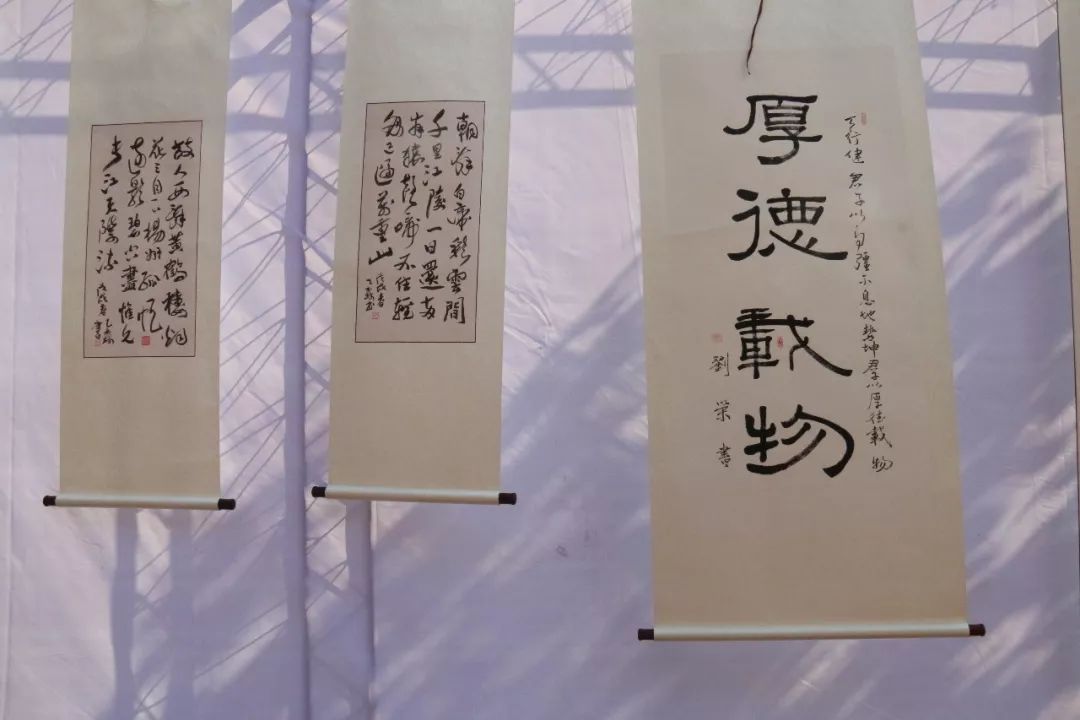 天行健君子以自彊不息地勢坤君子以厚德載物
厚德載物
劉榮書
朝辭白帝彩雲間
千里江陵一日還两
岸猿聲啼不住輕
舟已過萬重山
戊戌春
故人西辭黄鶴樓烟
花三月下揚州孤帆
遠影碧空盡惟見
長江天際流
戊戌春